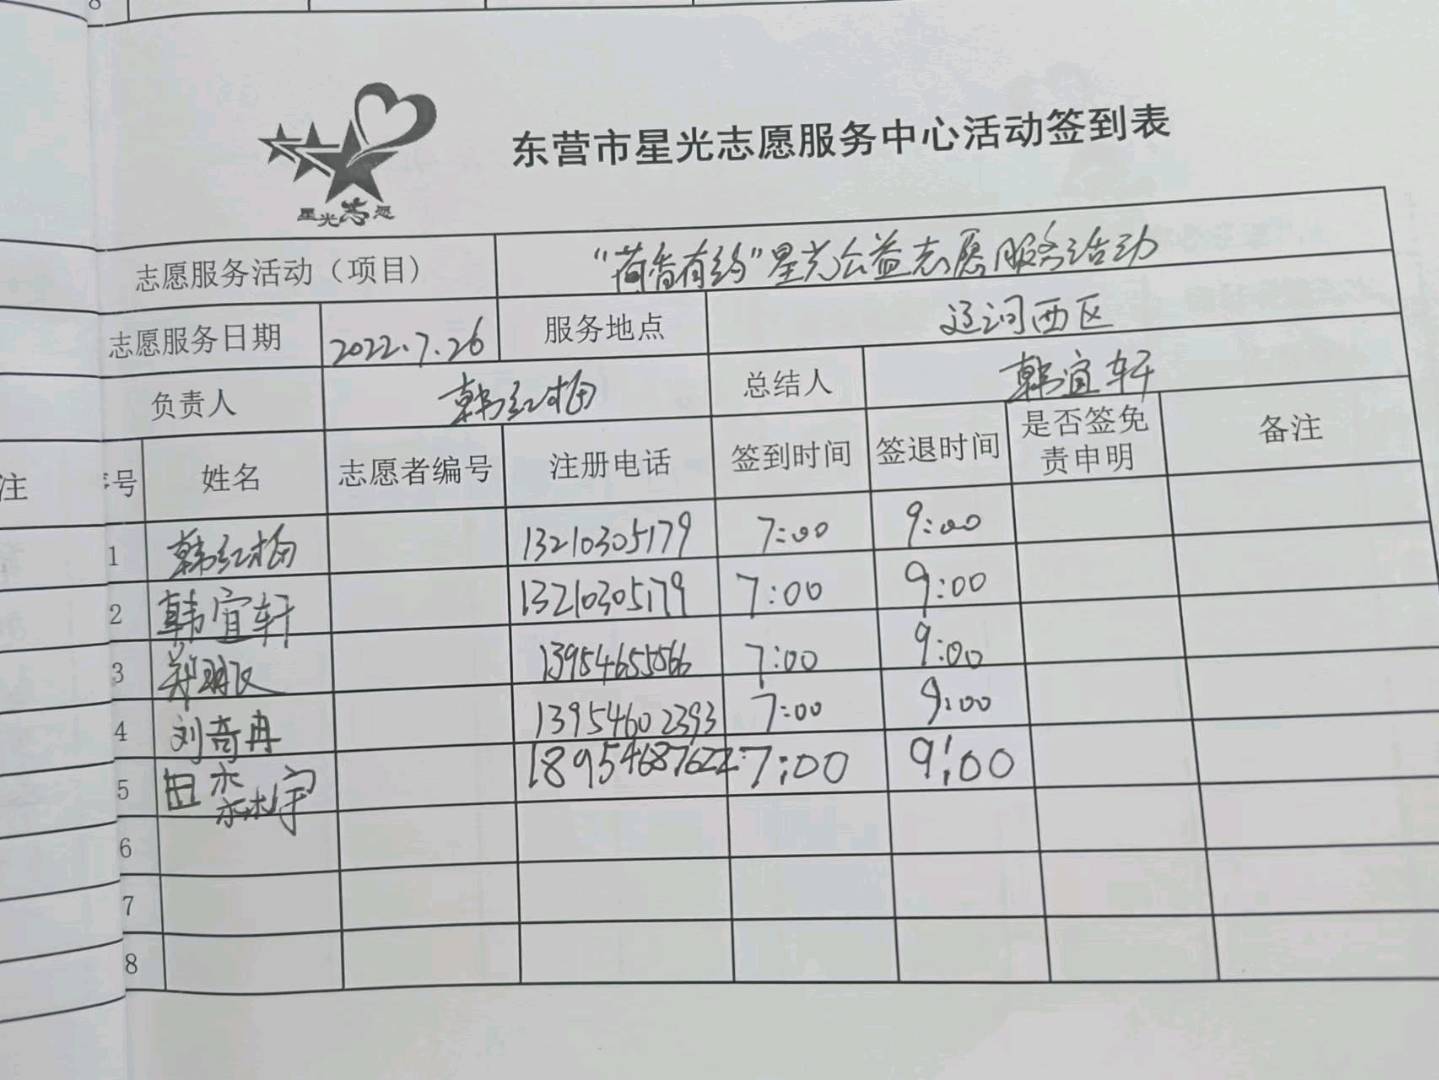 8
星光志愿
东营市星光志愿服务中心活动签到表
志愿服务活动（项目） “荷香有约”星光公益志愿服务活动
志愿服务日期 2022.7.26 服务地点 辽河西区
负责人 韩红梅 总结人 韩宜轩
注
序号 姓名 志愿者编号 注册电话 签到时间 签退时间 是否签免责申明 备注
1 韩红梅 13210305179 7:00 9:00
2 韩宜轩 13210305179 7:00 9:00
3 13954655566 7:00 9:00
4 刘奇冉 13954602393 7:00 9:00
5 田 宇 18954687622 7:00 9:00
6
7
8